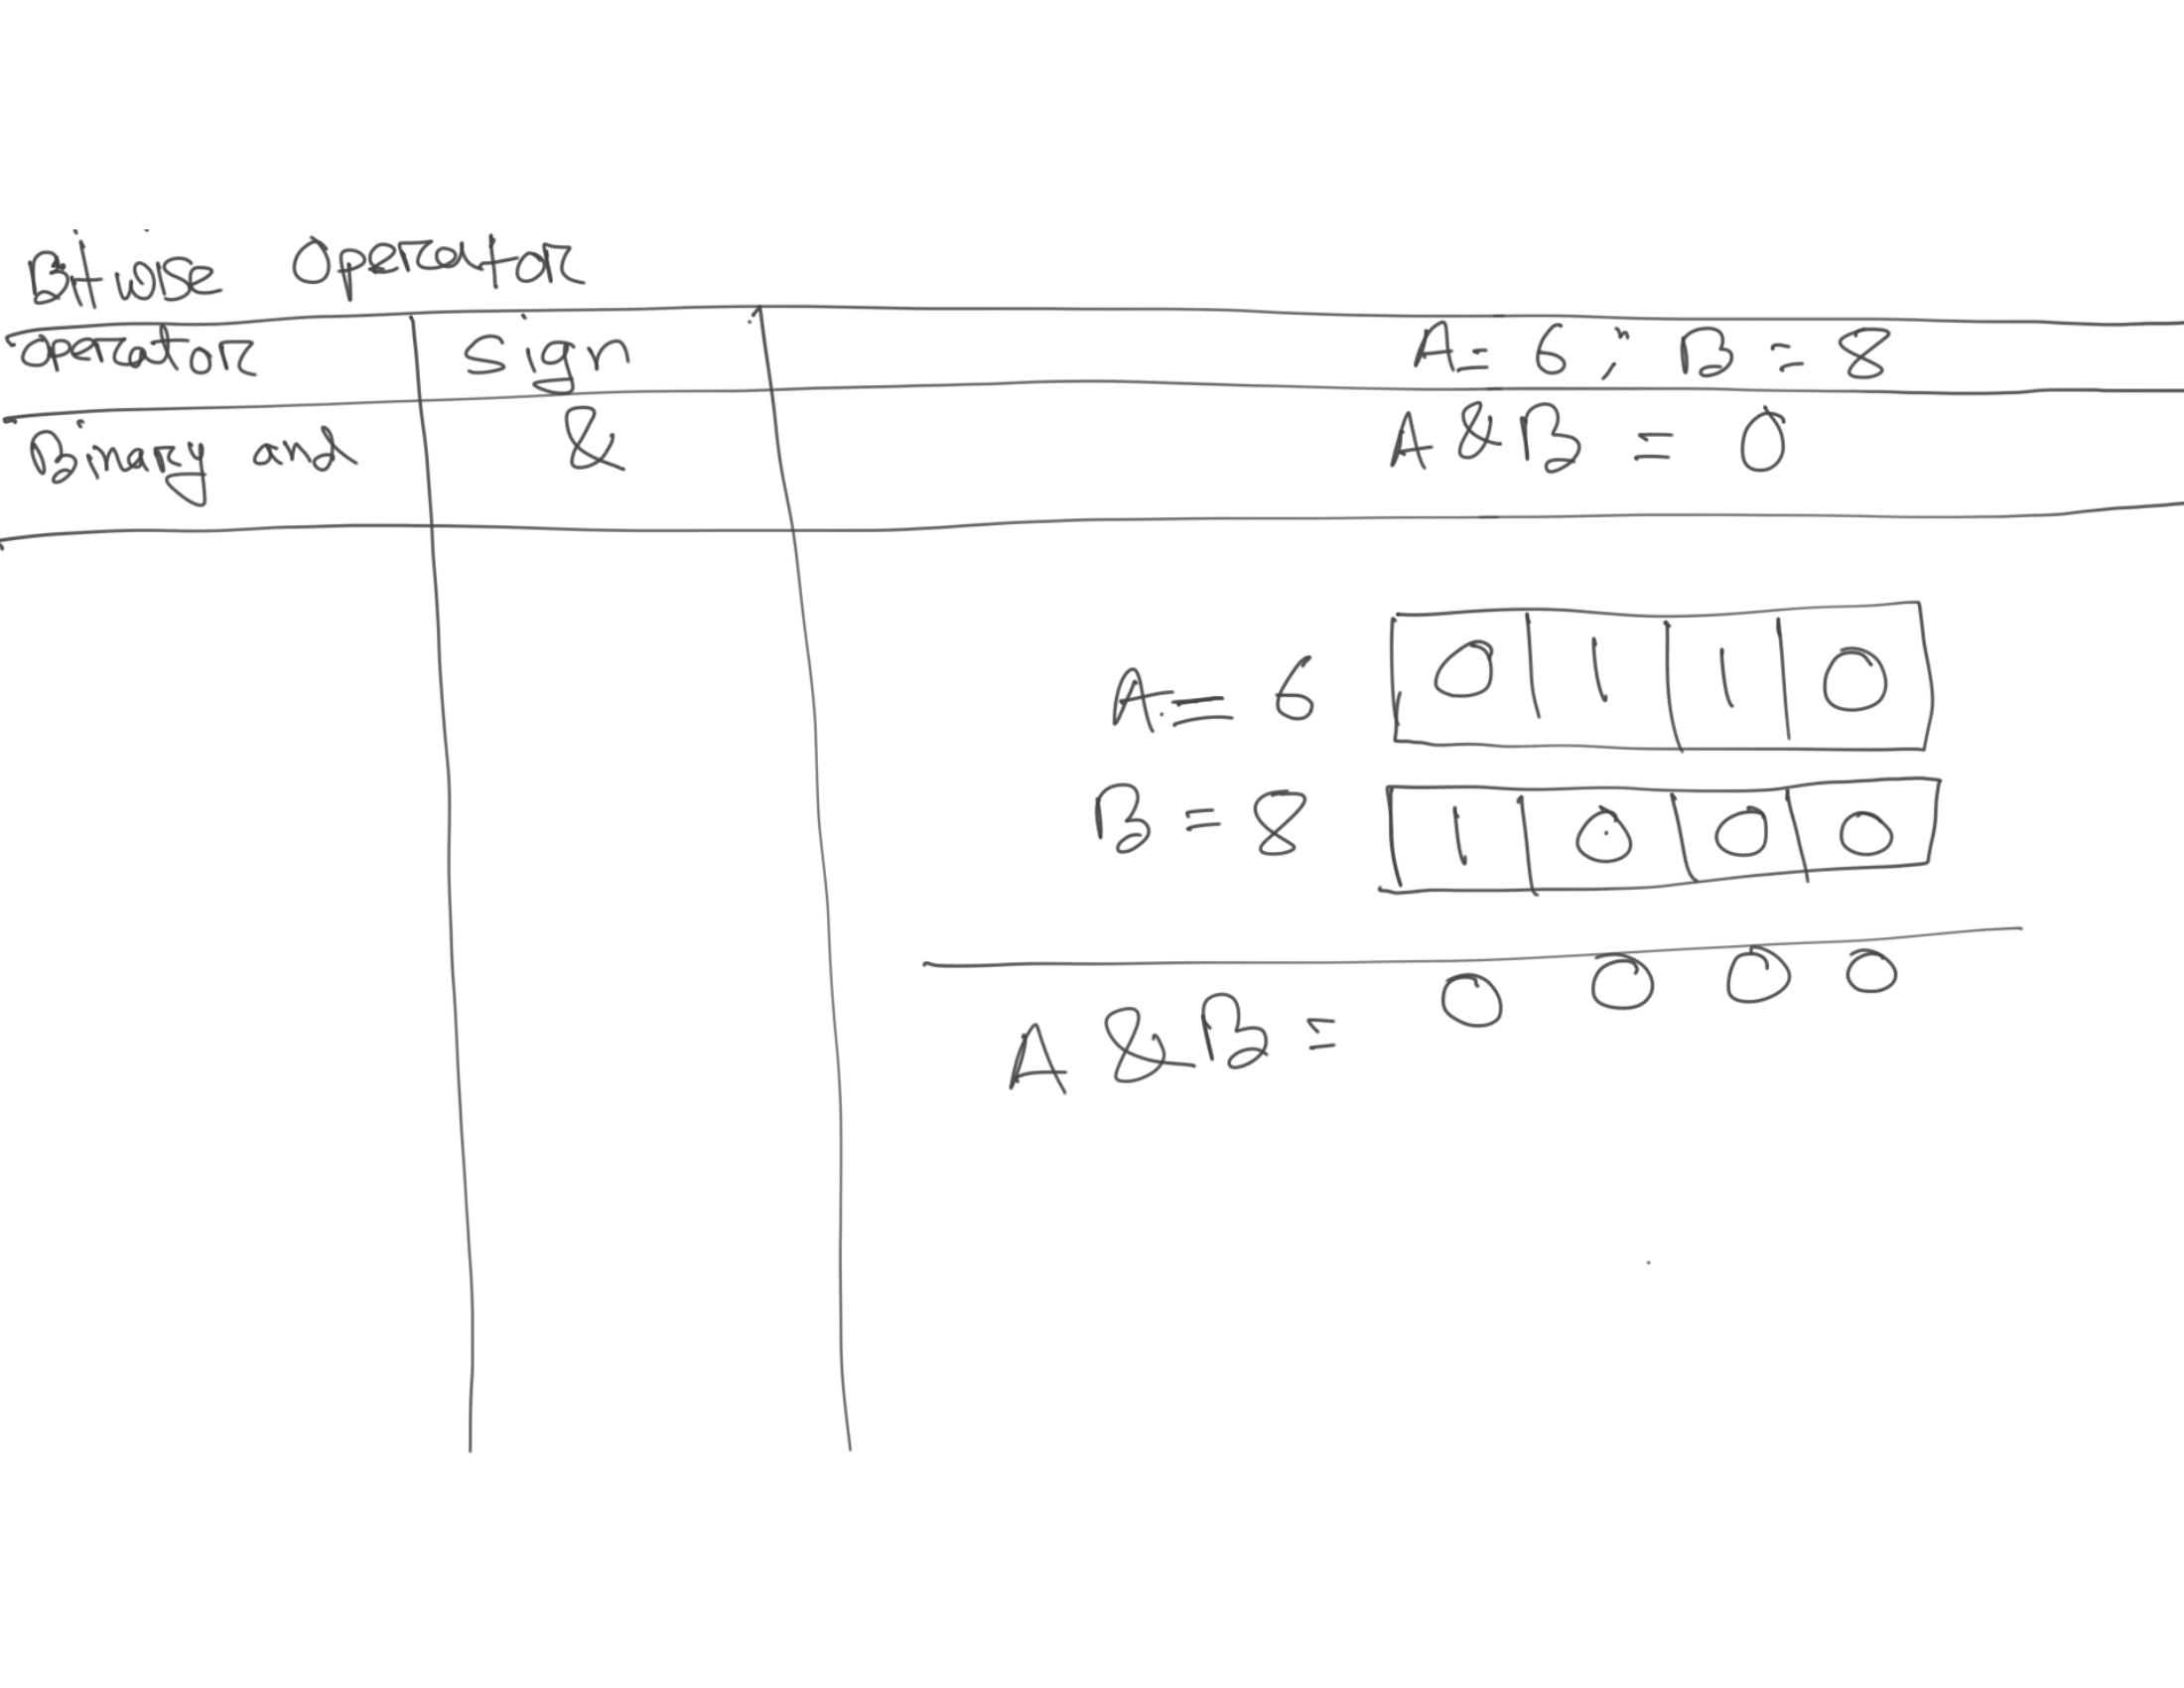 Bitwise Operator
Operator Sign A = 6 ; B = 8
Binary and & A & B = 0
A = 6 0 1 1 0
B = 8 1 0 0 0
A & B = 0 0 0 0